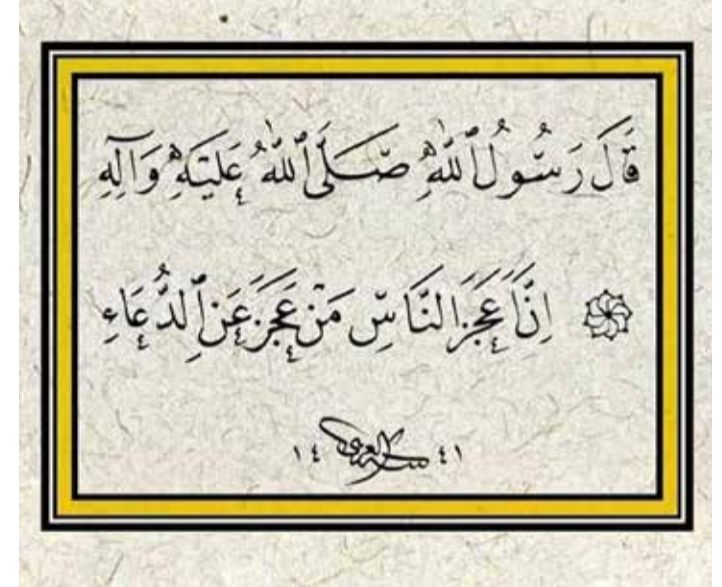 قَالَ رَسُولُ ٱللَّهِ صَلَّى ٱللَّهُ عَلَيْهِ وَآلِهِ
اِنَّ أَعْجَزَ النَّاسِ مَنْ عَجَزَ عَنِ ٱلدُّعَاءِ
١٤ ٤١